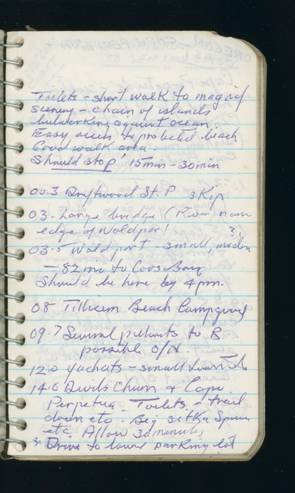 Toilets - short walk to magnif
scenery - chain of islands
bulwarking against ocean
Easy access to protected beach
Good walk area.
Should stop! 15 min - 30 min
00.3 Driftwood St. P skip
03. Large bridge (River name
edge of Waldport ?)
03.5 Waldport - small, modern
- 82 mi to Coos Bay
Should be here by 4 pm.
08 Tillicum Beach Campground
09.7 Several pulouts to R
possible O/N.
12.0 Yachats - small
14.6 Devils Churn & Cape
Perpetua - Toilets - trail
down etc. Big Sitka Spruce
etc. Allow 30 minutes
* Drive to lower parking lot